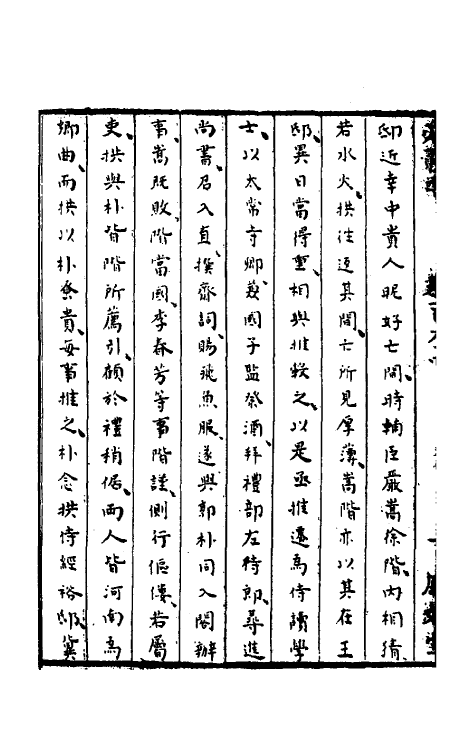 邸近幸中貴人昵好亡間時輔臣嚴嵩徐階内相猜
若水火拱往返其間亡所見厚薄嵩階亦以其在王
邸異日當得重相與推轂之以是亟推遷為侍讀學
士以太常寺卿兼國子監祭酒拜禮部左侍郎尋進
尚書召入直撰齋詞賜飛魚服遂與郭朴同入閣辦
事嵩既敗階當國李春芳等事階謹側行傴僂若屬
吏拱與朴皆階所薦引顧於禮稍倨而人皆河南為
鄉曲而拱以朴耆貴每事推之朴念拱侍經裕邸冀